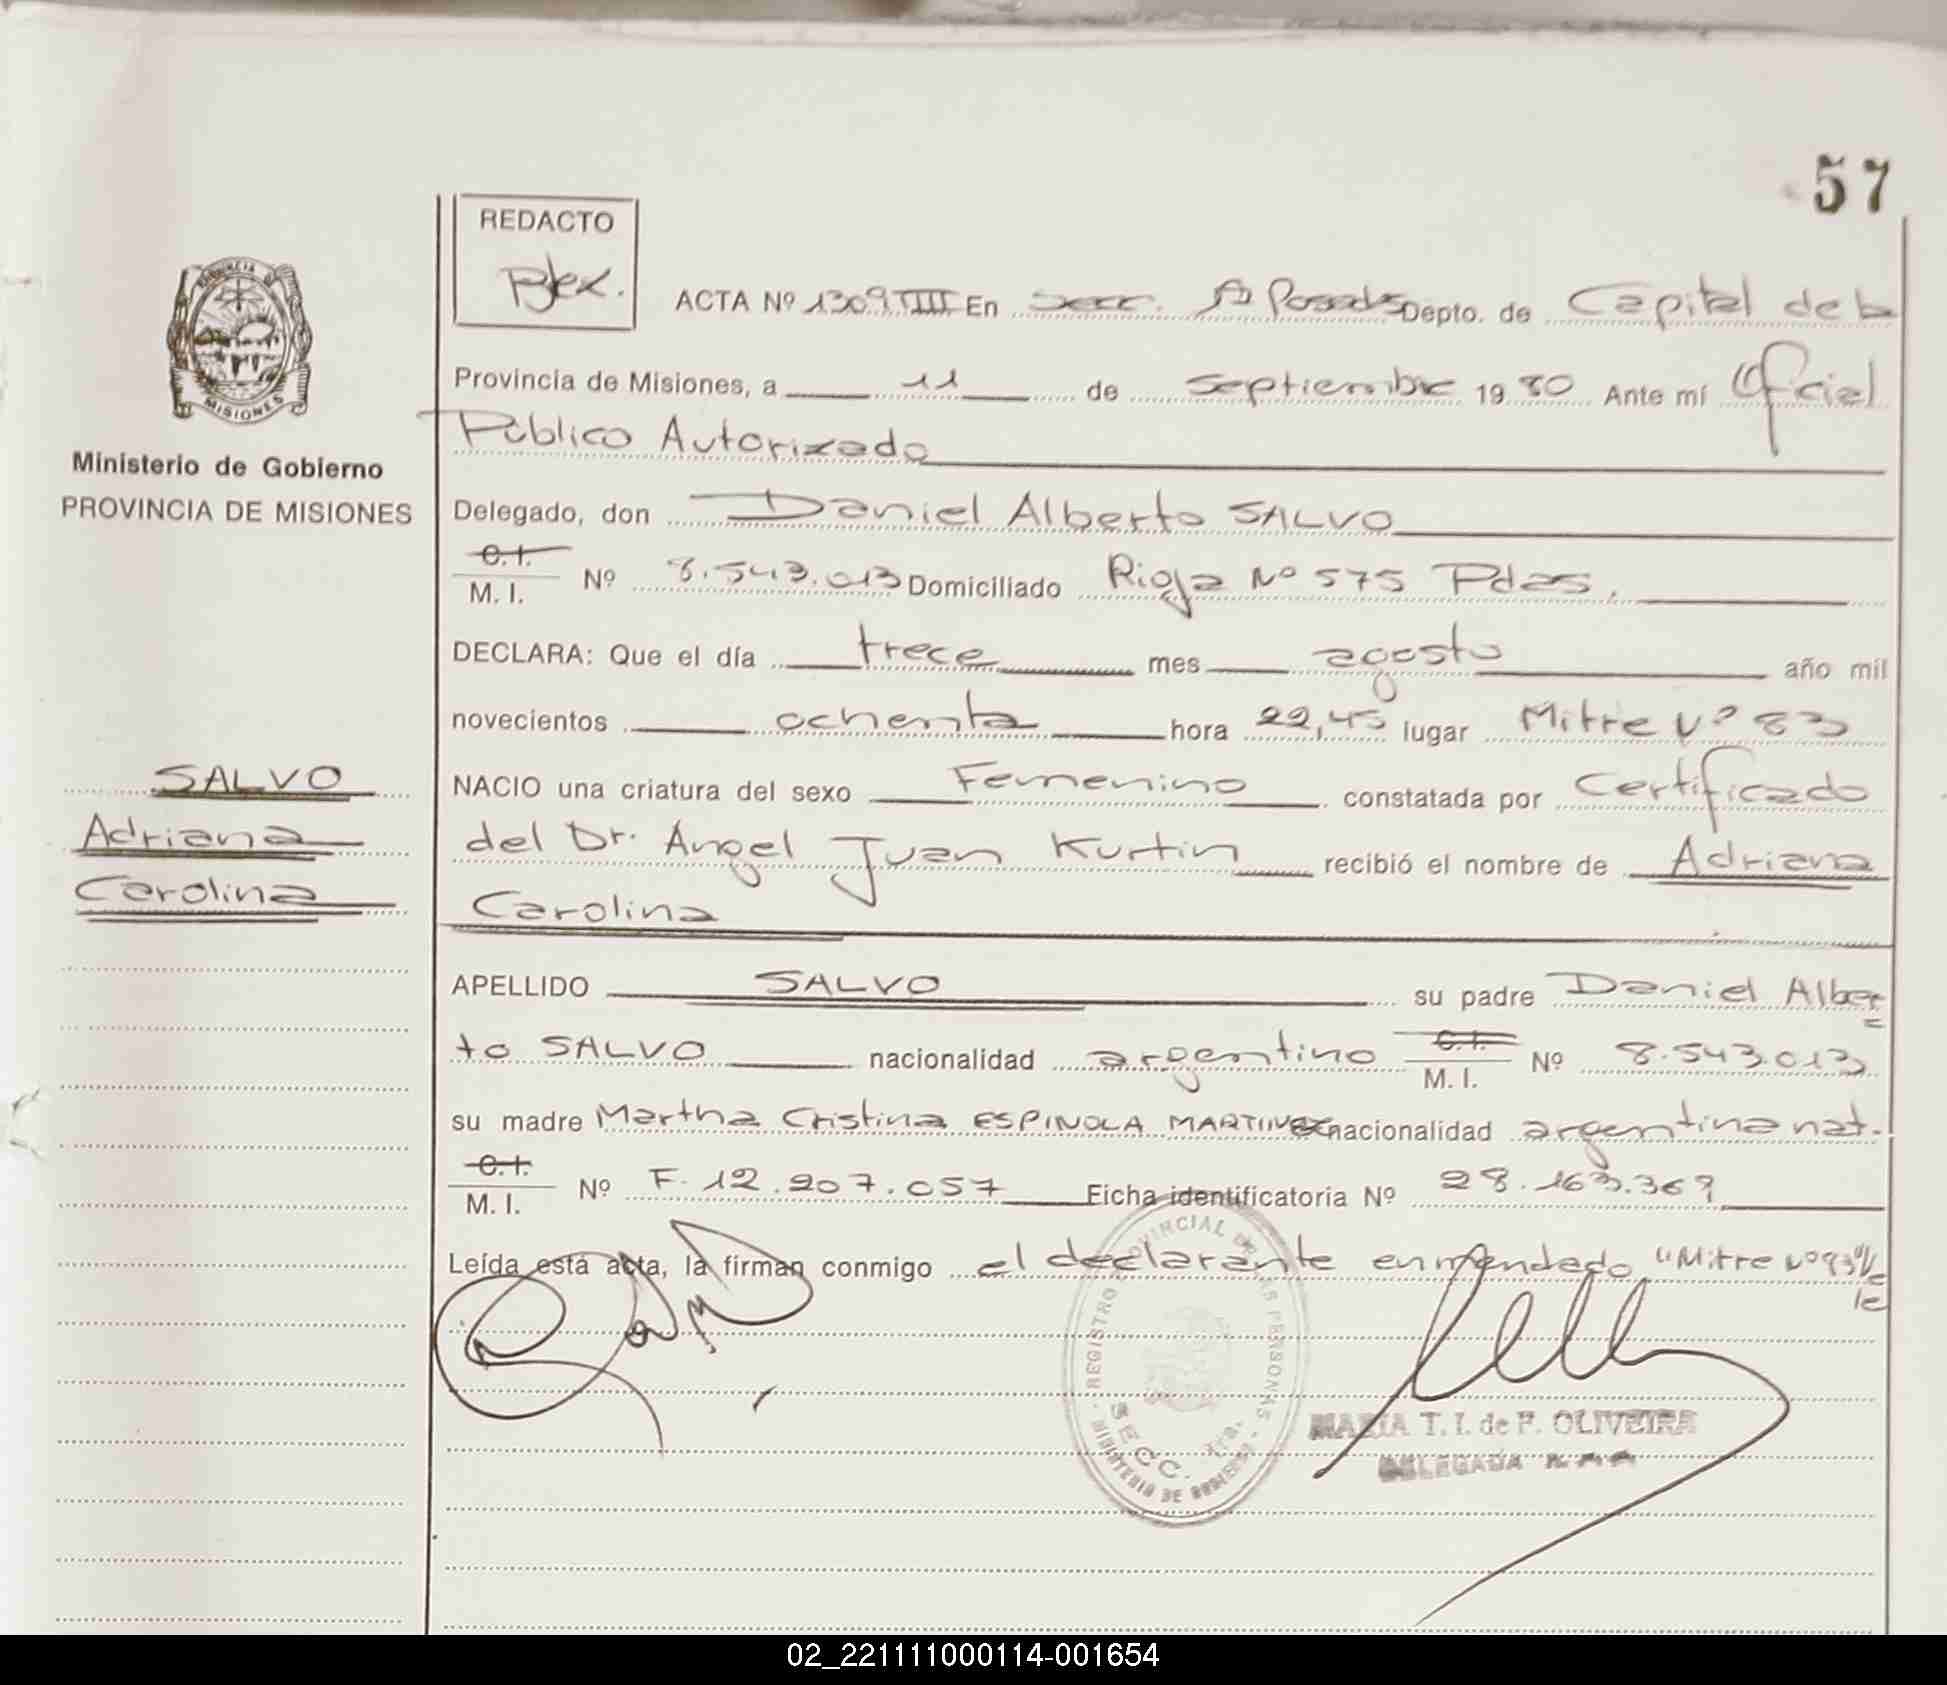 57
REDACTO
ACTA Nº 1309 TIII En Secc. 1ª Posadas Depto. de Capital de la
PROVINCIA DE MISIONES
Ministerio de Gobierno
PROVINCIA DE MISIONES
Provincia de Misiones, a 11 de Septiembre 1980 Ante mí Oficial
Público Autorizado
Delegado, don Daniel Alberto SALVO
C.I.
M. I. Nº 8.543.013 Domiciliado Rioja Nº 575 Pdas.
DECLARA: Que el día trece mes agosto año mil
novecientos ochenta hora 22,45 lugar Mitre Nº 83
NACIO una criatura del sexo Femenino constatada por Certificado
del Dr. Angel Juan Kurtin recibió el nombre de Adriana
Carolina
SALVO
Adriana
Carolina
APELLIDO SALVO su padre Daniel Alber=
to SALVO nacionalidad argentino C.I. M. I. Nº 8.543.013
su madre Martha Cristina ESPINOLA MARTINEZ nacionalidad argentina nat.
C.I.
M. I. Nº F. 12.207.057 Ficha identificatoria Nº 28.163.369
Leída está acta, la firman conmigo el declarante enmendado "Mitre Nº 83"
REGISTRO PROVINCIAL DE LAS PERSONAS
SECC. 1ra.
MINISTERIO DE GOBIERNO
MARIA T. I. de F. OLIVEIRA
DELEGADA
02_221111000114-001654